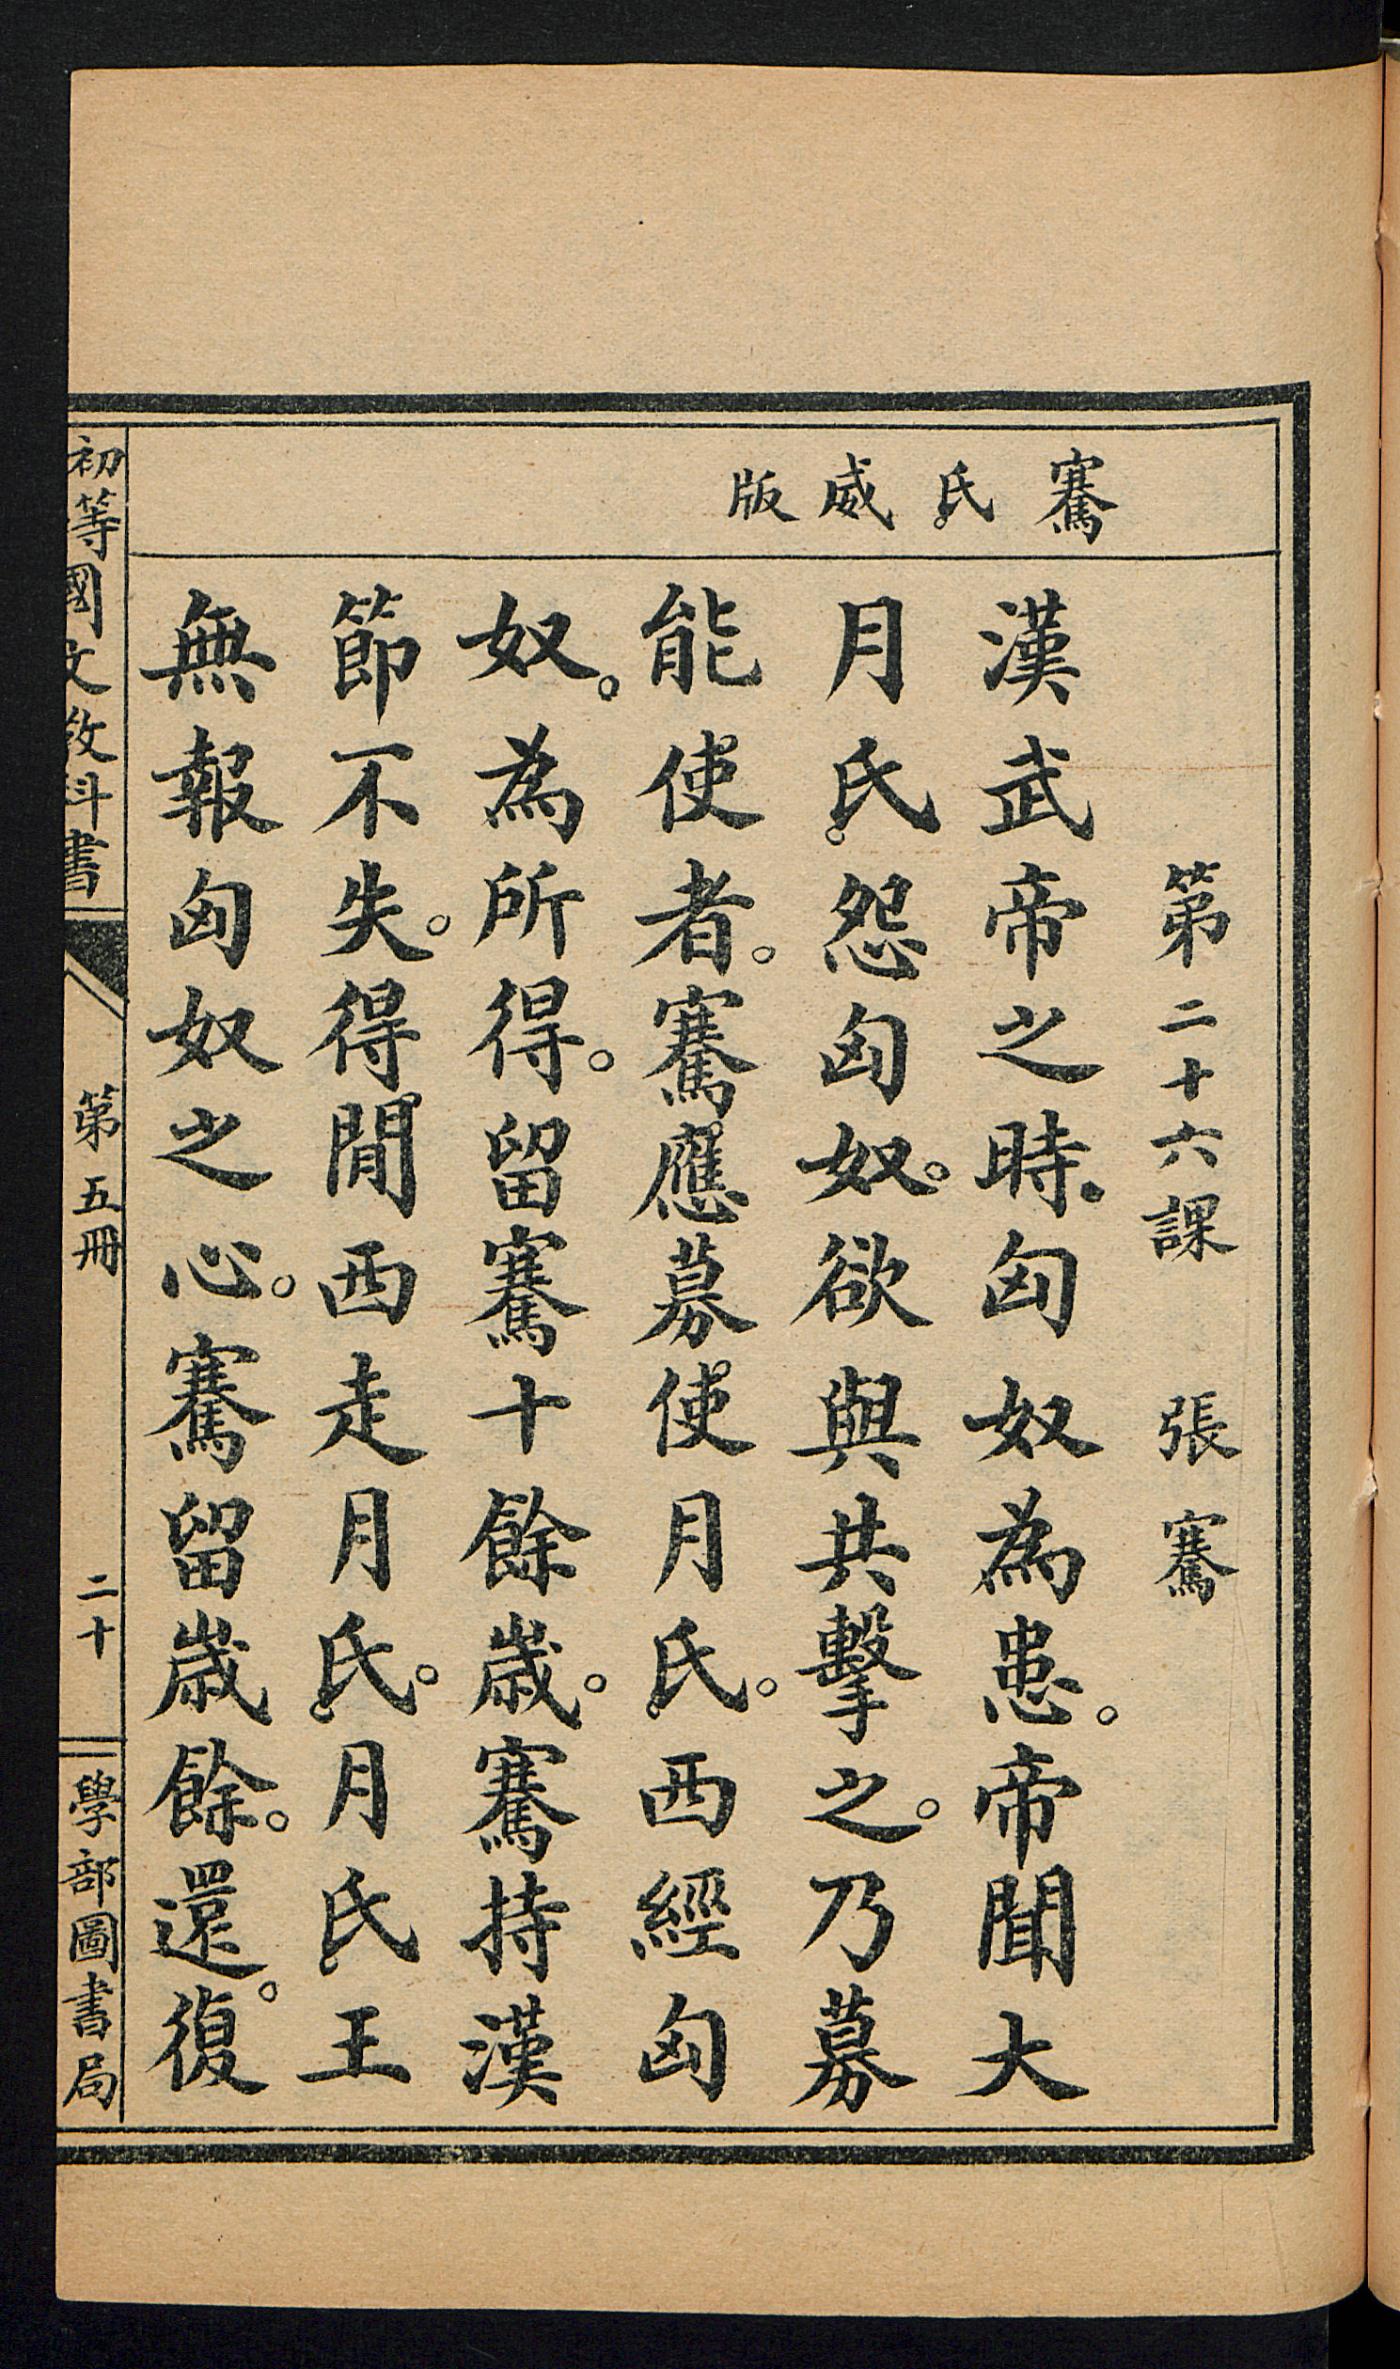 騫氏威版
第二十六課　張騫
漢武帝之時.匈奴為患。帝聞大
月氏怨匈奴。欲與共擊之。乃募
能使者。騫應募使月氏。西經匈
奴。為所得。留騫十餘歲。騫持漢
節不失。得閒西走月氏。月氏王
無報匈奴之心。騫留歲餘。還。復
初等國文教科書　第五冊　二十　學部圖書局